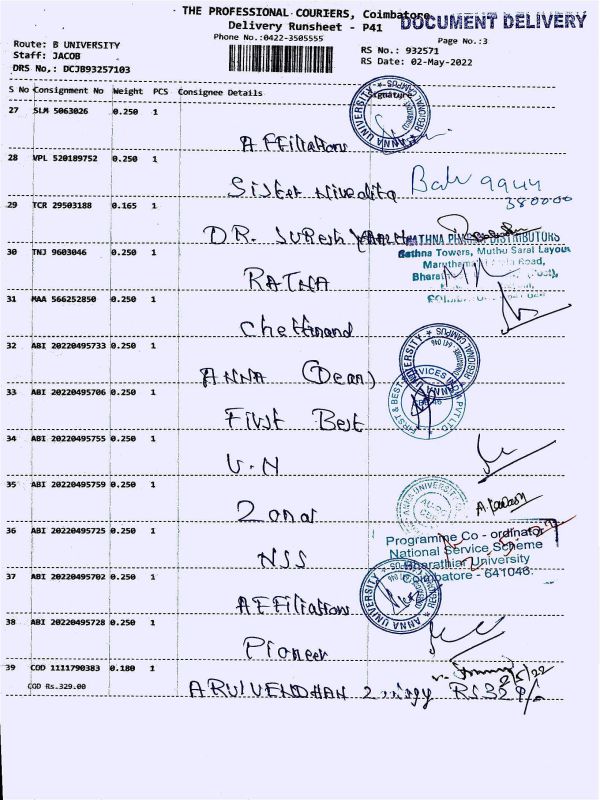 THE PROFESSIONAL COURIERS, Coimbatore
DOCUMENT DELIVERY
Delivery Runsheet - P41
Phone No.:0422-3505555
Page No.:3
Route: B UNIVERSITY
RS No.: 932571
Staff: JACOB
RS Date: 02-May-2022
DRS No.: DCJB93257103
S No Consignment No Weight PCS Consignee Details Signature
27 SLM 5063026 0.250 1
ANNA UNIVERSITY REGIONAL CAMPUS
Affiliations
28 VPL 520189752 0.250 1
Sister Nivedita
9944
380000
29 TCR 29503188 0.165 1
DR. Suresh
RATHNA PHARMA DISTRIBUTORS
30 TNJ 9603046 0.250 1
Rathna Towers, Muthu Sarai Layout
Road,
RATNA
31 MAA 566252850 0.250 1
Chettinand
32 ABI 20220495733 0.250 1
ANNA UNIVERSITY REGIONAL CAMPUS
ANNA (Dean)
33 ABI 20220495706 0.250 1
FIRST & BEST SERVICES PVT LTD
First Best
34 ABI 20220495755 0.250 1
U.N
35 ABI 20220495759 0.250 1
ANNA UNIVERSITY
Zonal
36 ABI 20220495725 0.250 1
Programme Co - ordinator
National Service Scheme
Bharathiar University
Coimbatore - 641046.
NSS
37 ABI 20220495702 0.250 1
ANNA UNIVERSITY REGIONAL CAMPUS
Affiliations
38 ABI 20220495728 0.250 1
Pioneer
39 COD 1111790383 0.180 1
2/5/22
COD Rs.329.00
ARULVENDHAN